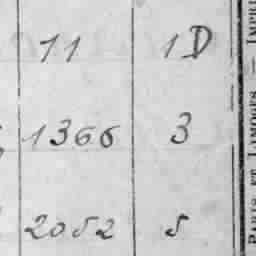 11 1D
1366 3
2052 5
PARIS ET LIMOGES. — IMPRI